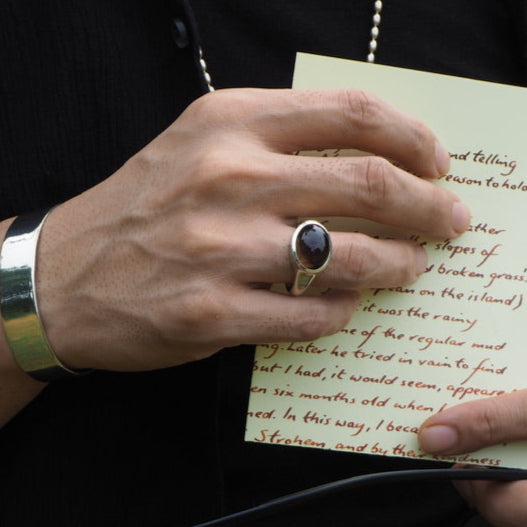 and telling
reason to hold
ather
slopes of
d broken grass.
pean on the island)
it was the rainy
ne of the regular mud
ng. Later he tried in vain to find
but I had, it would seem, appeare
en six months old when
ned. In this way, I beca
Strohem and by their kindness